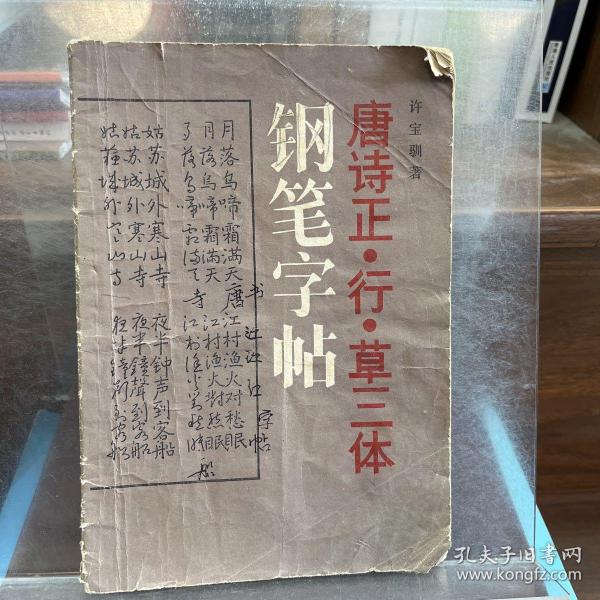 许宝驯著
唐诗正·行·草三体
钢笔字帖
月落乌啼霜满天 江村渔火对愁眠
月落乌啼霜满天 江村渔火對愁眠
月落乌啼霜满天 江村渔火对愁眠
姑苏城外寒山寺 夜半钟声到客船
姑苏城外寒山寺 夜半鐘聲到客船
姑苏城外寒山寺 夜半鐘聲到客船
唐
书
江
字帖
寺
船
孔夫子旧书网
www.kongfz.com